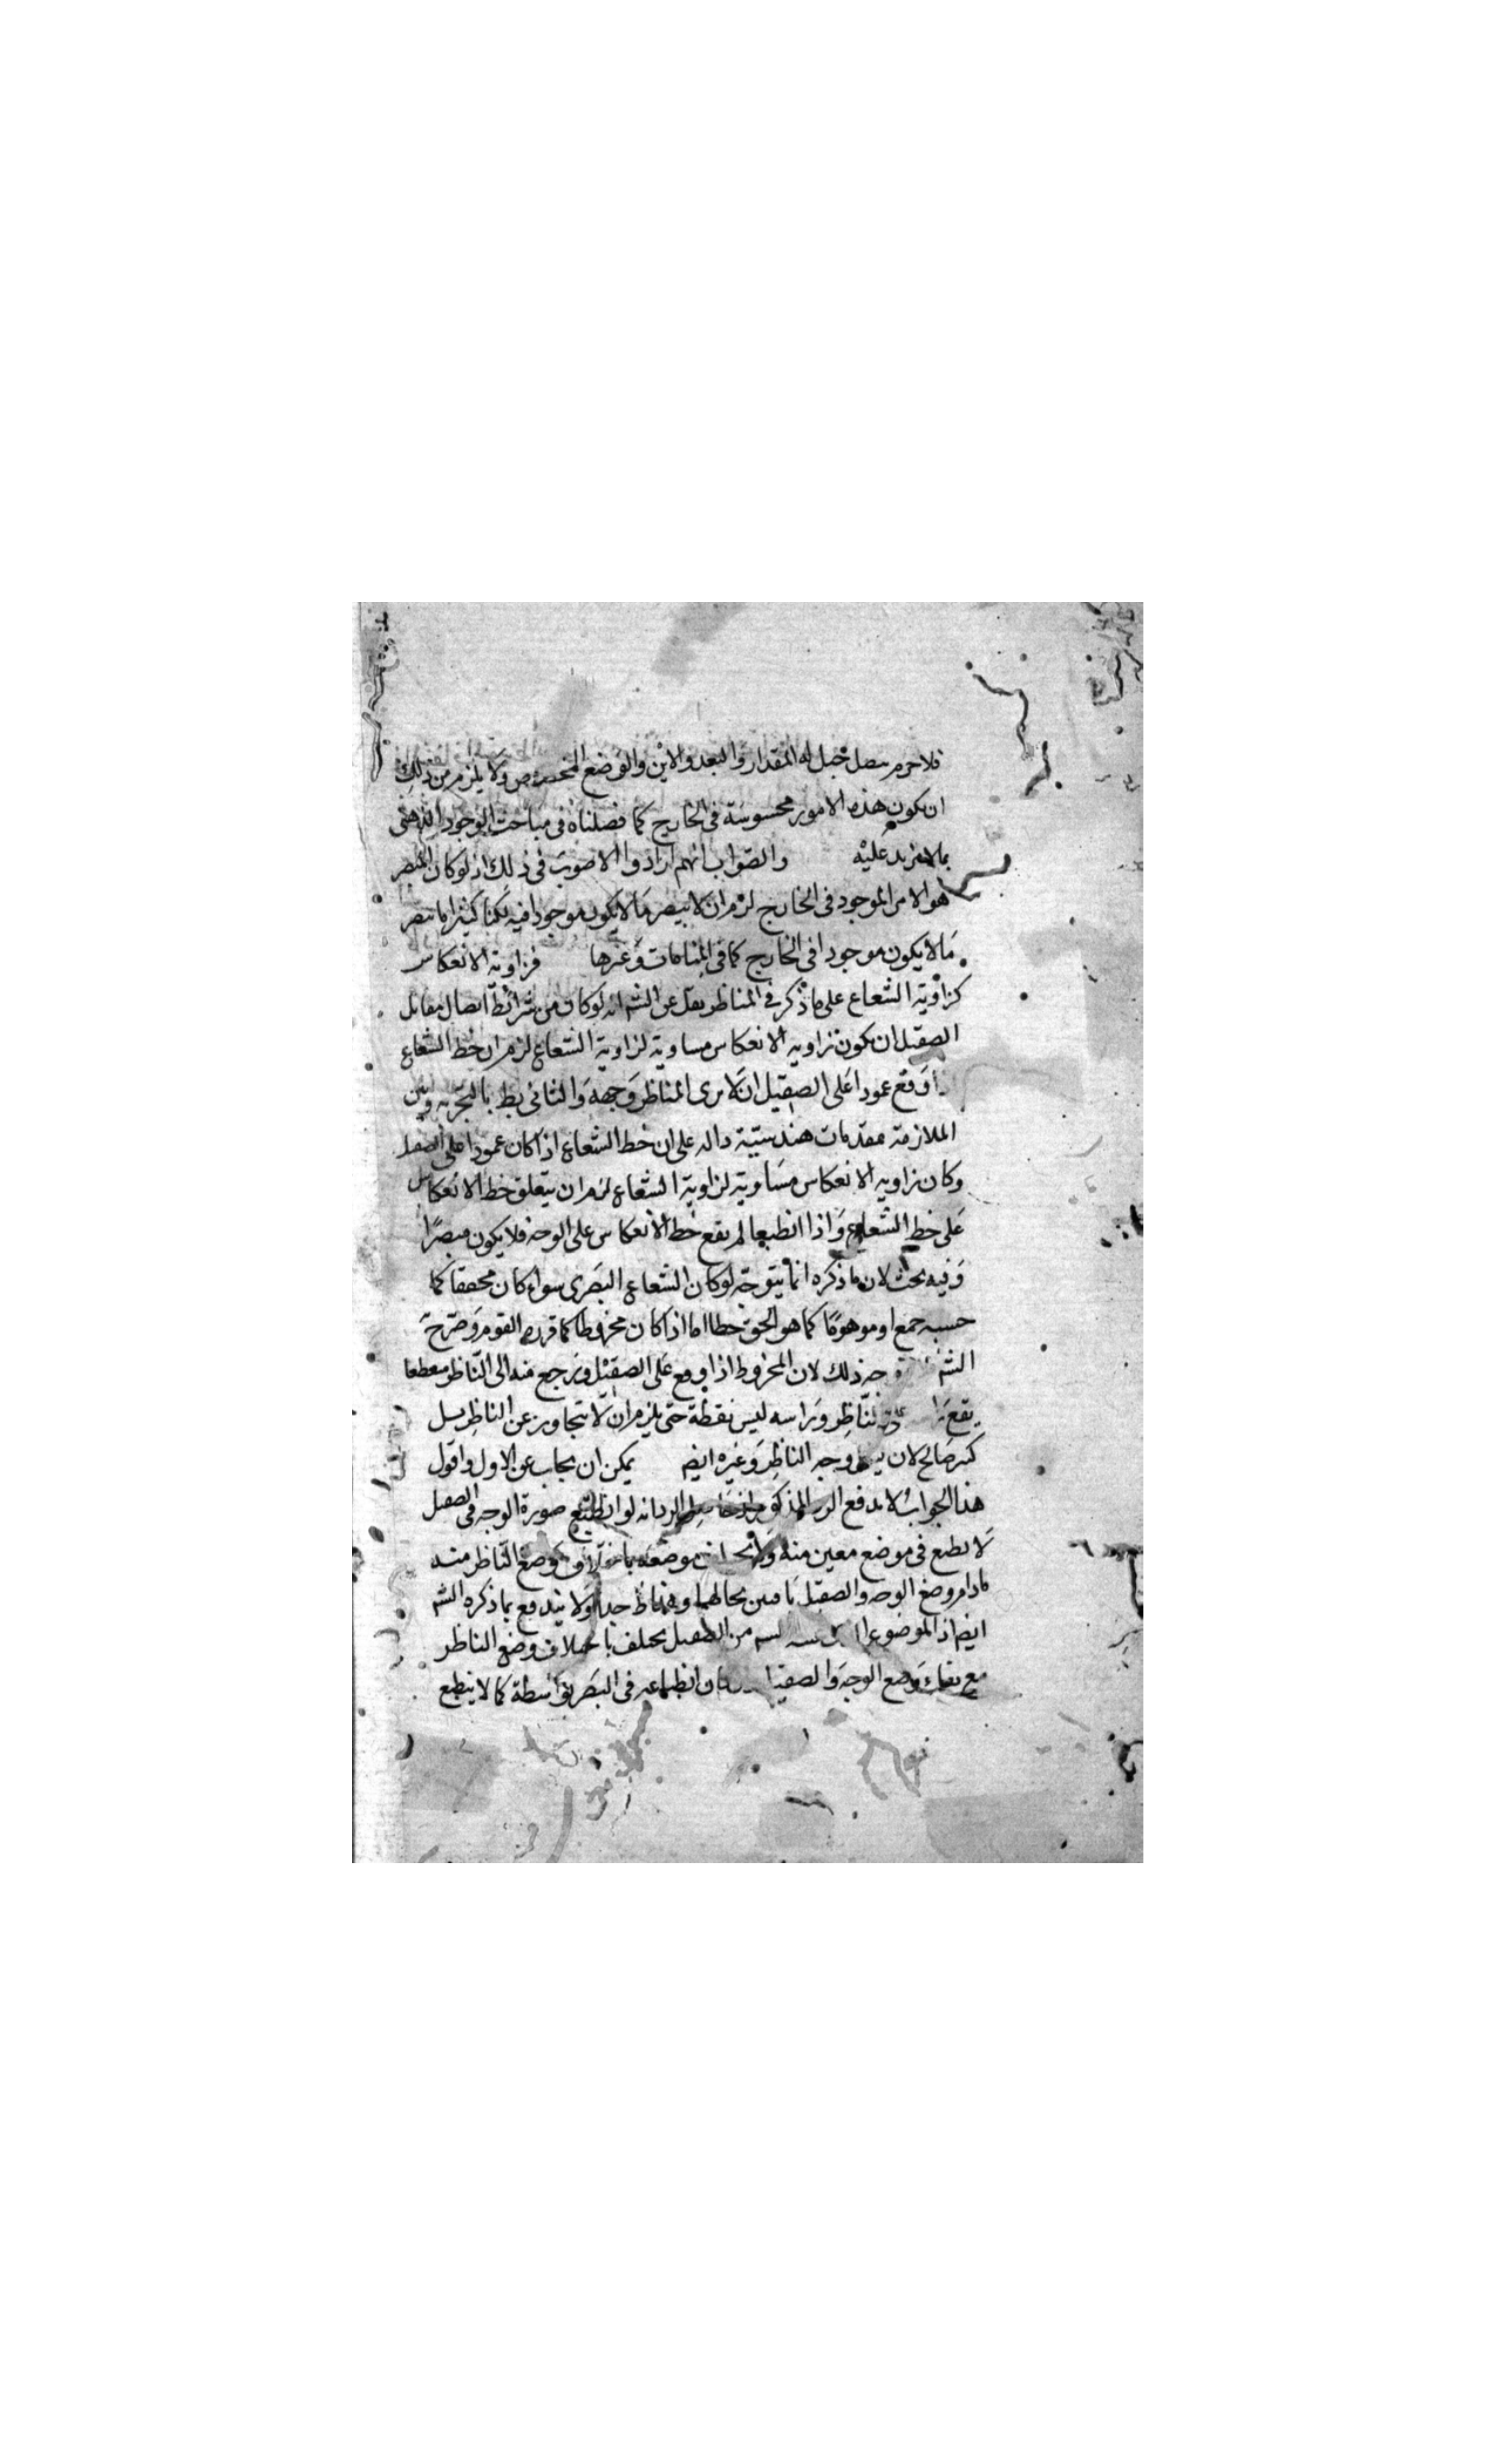 فلا جرم يتصل خيل له المقدار والبعد والاين والوضع المخصوص ولا يلزم من ذلك
ان يكون هذه الامور محسوسة في الخارج كما فصلناه في مباحث الوجود الذهني
بما لا مزيد عليه والصواب انهم ارادوا الاصوب في ذلك اذ لو كان المبصر
هو الامر الموجود في الخارج لزم ان لا يبصر ما لا يكون موجودا فيه لكنا كثيرا ما نبصر
ما لا يكون موجودا في الخارج كما في المنامات وغيرها فزاوية الانعكاس
كزاوية الشعاع على ما ذكر في المناظر نقل عن الشم انه لو كان من شرائط اتصال مقابل
الصقيل ان يكون زاويه الانعكاس مساوية لزاوية الشعاع لزم ان خط الشعاع
اذا وقع عمودا على الصقيل ان لا يرى المناظر وجهه والثاني بط بالتجربه وبين
الملازمة مقدمات هندسية داله على ان خط الشعاع اذا كان عمودا على الصقيل
وكان زاويه الانعكاس مساوية لزاوية الشعاع لزم ان يتعلق خط الانعكاس
على خط الشعاع واذا انطبعا لم يقع خط الانعكاس على الوجه فلا يكون مبصرا
وفيه بحث لان ما ذكره انما يتوجه لو كان الشعاع البصرى سواء كان محققا كما
حسبه جمع او موهوما كما هو الحق خطا اما اذا كان مخروطا كما قرره القوم وصرح
الشم ذلك لان المخروط اذا وقع على الصقيل ورجع منه الى الناظر معطعا
يقع الناظر وراسه ليس نقطة حتى يلزم ان لا يتجاوز عن الناظر بل
كبر صالح لان وجه الناظر وغيره ايضم يمكن ان يجاب عن الاول واقول
هذا الجواب لا يدفع الرد المذكور الرد انه لو انطبع صورة الوجه في الصقيل
لا نطبع في موضع معين منه موضعه وضع الناظر منه
ما دام وضع الوجه والصقيل باقيين بحالهما وهذا ظ جدا ولا يندفع بما ذكره الشم
ايضم اذ الموضوع من الصقيل يختلف باختلاف وضع الناظر
مع بقاء وضع الوجه والصقيل انطباعه في البصر بواسطة كما لا ينطبع